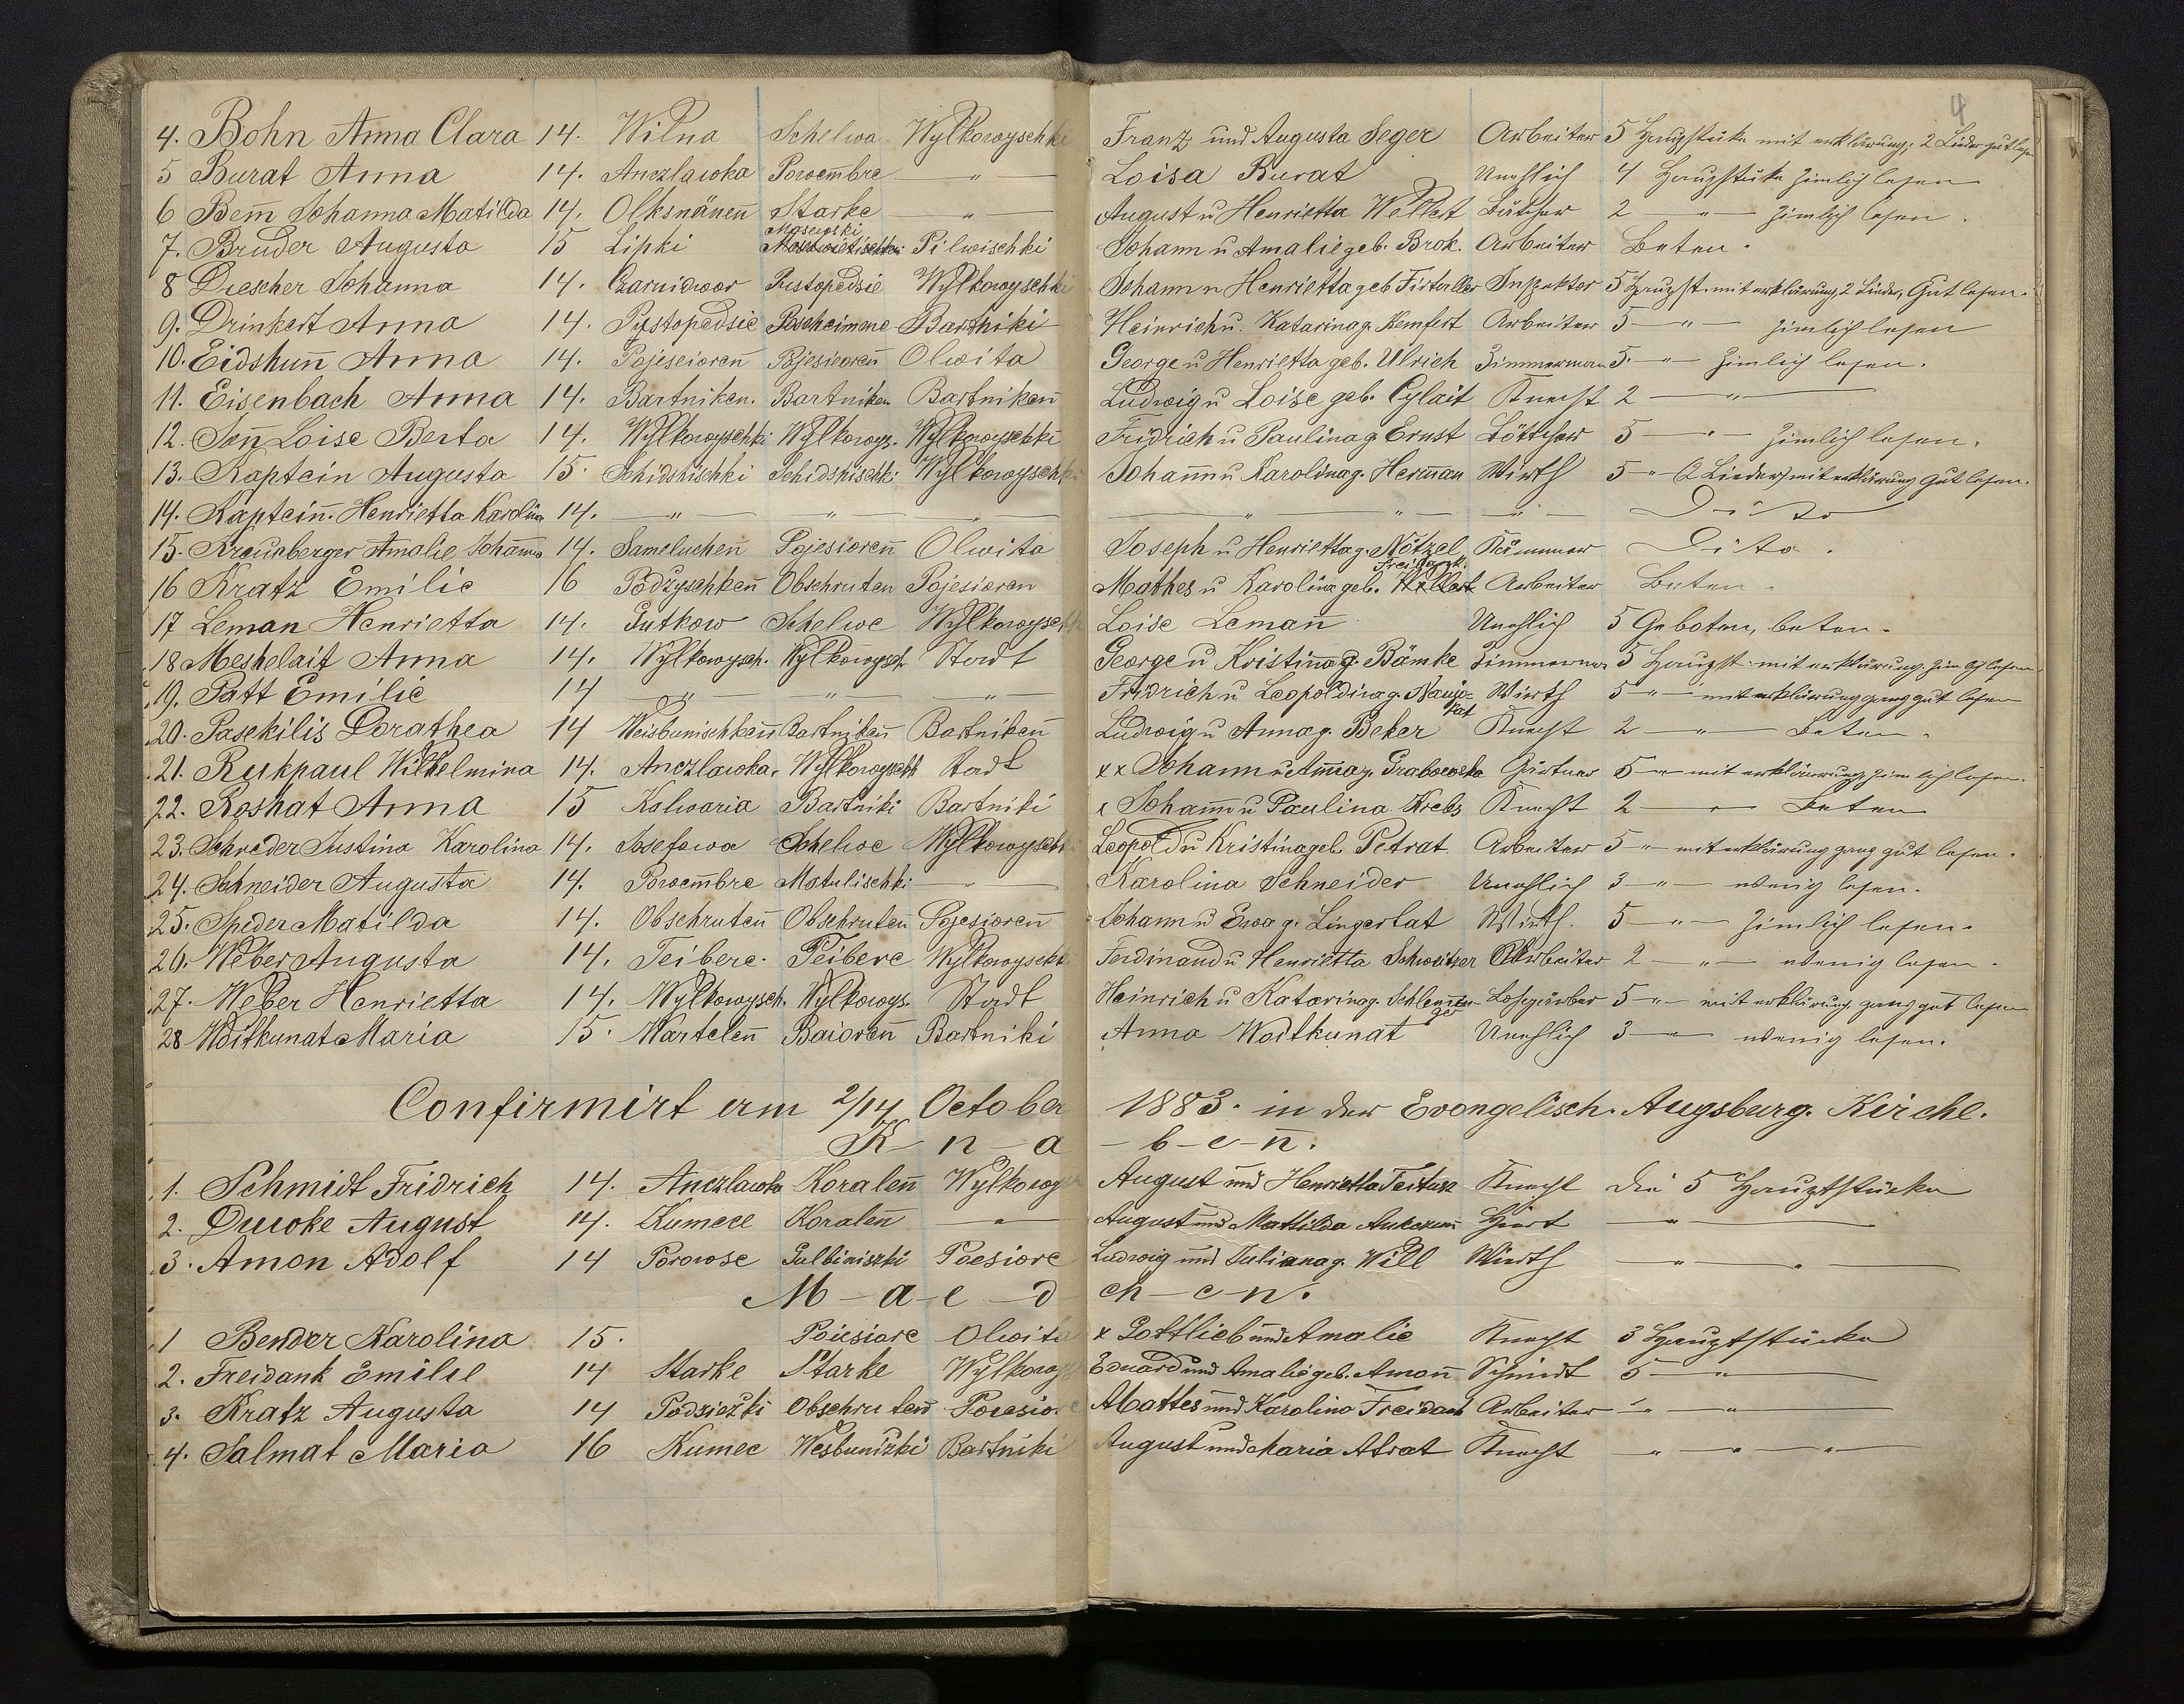 4
4. Bohn Anna Clara 14. Wilna Schelwa Wylkowyschki Franz und Augusta Seger Arbeiter 5 Haupstüke mit erklärung, 2 Lieder gut lesen
5 Burat Anna 14. Anczlawka Powembre — " — Loisa Burat Unehlich 4 Haupstüke zimlich lesen
6 Bem̅ Johanna Matilda 14. Olksnänen̅ Starke — " — August u Henrietta Wellert 2 — " — zimlich lesen.
7. Bruder Augusta 15 Lipki Mosewski Pilwischki Johann u Amalie geb. Brok. Arbeiter Beten.
8 Duscher Johanna 14. Czarnidwor Pustopedsie Wylkowyschki Johann u Henrietta geb Inspektor 5 Haupst. mit erklärung, 2 Lieder, Gut lesen.
9. Drinkert Anna 14. Pustopedsie Poscheimene Bartniki Heinrich u. Katarina g. Kemfert Arbeiter 5 — " — zimlich lesen
10. Eidshun̅ Anna 14. Pojeseioren̅ Pojesieoren̅ Olwita George u Henrietta geb. Ulrich Zimmermann 5. — " — zimlich lesen.
11. Eisenbach Anna 14. Bartniken. Bartniken Bartniken̅ Ludwig u Loise geb. Cylait Knecht 2 — " —
12. Loise Berta 14. Wylkowyschki Wylkowys. Wylkowyschki Fridrich u Paulina g. Ernst Böttcher 5 — " — zimlich lesen.
13. Kaptein Augusta 15. Schidshischki Schidshischki Wylkowyschki Johann u Karolina g. Herman̅ Wirth 5 — " (2 Lieder) mit erklärung gut lesen.
14. Kaptein̅. Henrietta Karolina 14. — " — — " — — " — — " — — " — — " — Dito
15. Kreusberger Amalie Johanna 14. Sameluchen̅ Pojesioren̅ Olwita Joseph u Henrietta g. Nötzel Dito.
16 Kratz Emilie 16 Podzyschken̅ Obschruten Pojesioren Mathes u Karolina geb. Freidank. Arbeiter Beten.
17 Leman Henrietta 14. Gutkow Schelwe Wylkowyschki Loise Leman̅ Unehlich 5 Geboten, beten.
18 Meshelait Anna 14. Wylkowysch. Wylkowysch. Stadt George u Kristina g. Bämke Zimmerman 5 Haupst. mit erklärung. zimlich lesen
19. Patt Emilie 14 — " — — " — — " — Fridrich u Leopoldina g. Naujokat Wirth 5 — " — mit erklärung ganz gut lesen
20. Pasekilis Dorathea 14 Weisbunischken̅ Bartniken̅ Bartniken̅ Ludwig u Anna g. Beker Knecht 2 — " — Beten.
21. Rukpaul Wilhelmina 14. Anczlawka. Wylkowyschki Stadt xx Johann u Anna g. Grabowska Gärtner 5 — " — mit erklärung zimlich lesen.
22. Roshat Anna 15 Kalwaria Bartniki Bartniki x Johann u Paulina Krebs Knecht 2 — " — Beten
23. Schreder Justina Karolina 14. Josefowa Schelwe Wylkowyschki Leopold u Kristina geb. Petrat Arbeiter 5 — " — mit erklärung ganz gut lesen.
24. Schneider Augusta 14. Powembre Matulischki — " — Karolina Schneider Unehlich 3 — " — wenig lesen.
25. Speder Matilda 14. Obschruten̅ Obschruten Pojesioren̅ Johann u Ewa g. Lingertat Wirth. 5 — " — zimlich lesen.
26. Weber Augusta 14. Teibere. Teibere Wylkowyschki Ferdinand u Henrietta Schweitzer Arbeiter 2 — " — wenig lesen.
27. Weber Henrietta 14. Wylkowysch. Wylkowys. Stadt Heinrich u Katarina g. Lohgärber 5 — " — mit erklärung, ganz gut lesen
28 Woitkunat Maria 15. Wartelen̅ Baioren̅ Bartniki Anna Woitkunat Unehlich 3 — " — wenig lesen.
Confirmirt am 2/14 October 1883. in der Evangelisch. Augsburg. Kirche.
K - n - a - b - e - n̅.
1. Schmidt Fridrich 14. Anczlawka Koralen̅ Wylkowys August und Henrietta Knecht die 5 Hauptstücke
2. Duwke August 14. Kumece Koralen̅ — " — August und Mathilda Hirt — " —
3. Amon Adolf 14 Porowse Gulbiniszki Poesiore Ludwig und Juliana g. Will Wirth — " — " —
M - a - e - d - ch - e - n.
1 Bender Karolina 15. Poiesiore Olwita x Gottlieb und Amalie Knecht 3 Hauptstücke
2. Freidank Emilie 14 Starke Starke Wylkowys Eduard und Amalie geb. Amon̅ Schmidt 5 — " —
3. Kratz Augusta 14 Podziezki Obschruten̅ Poiesiore Mattes und Karolina Freidank Arbeiter — " — " —
4. Salmat Maria 16 Kumec Wesbuniszki Bartniki August und Maria Atrat Knecht — " — " — " —